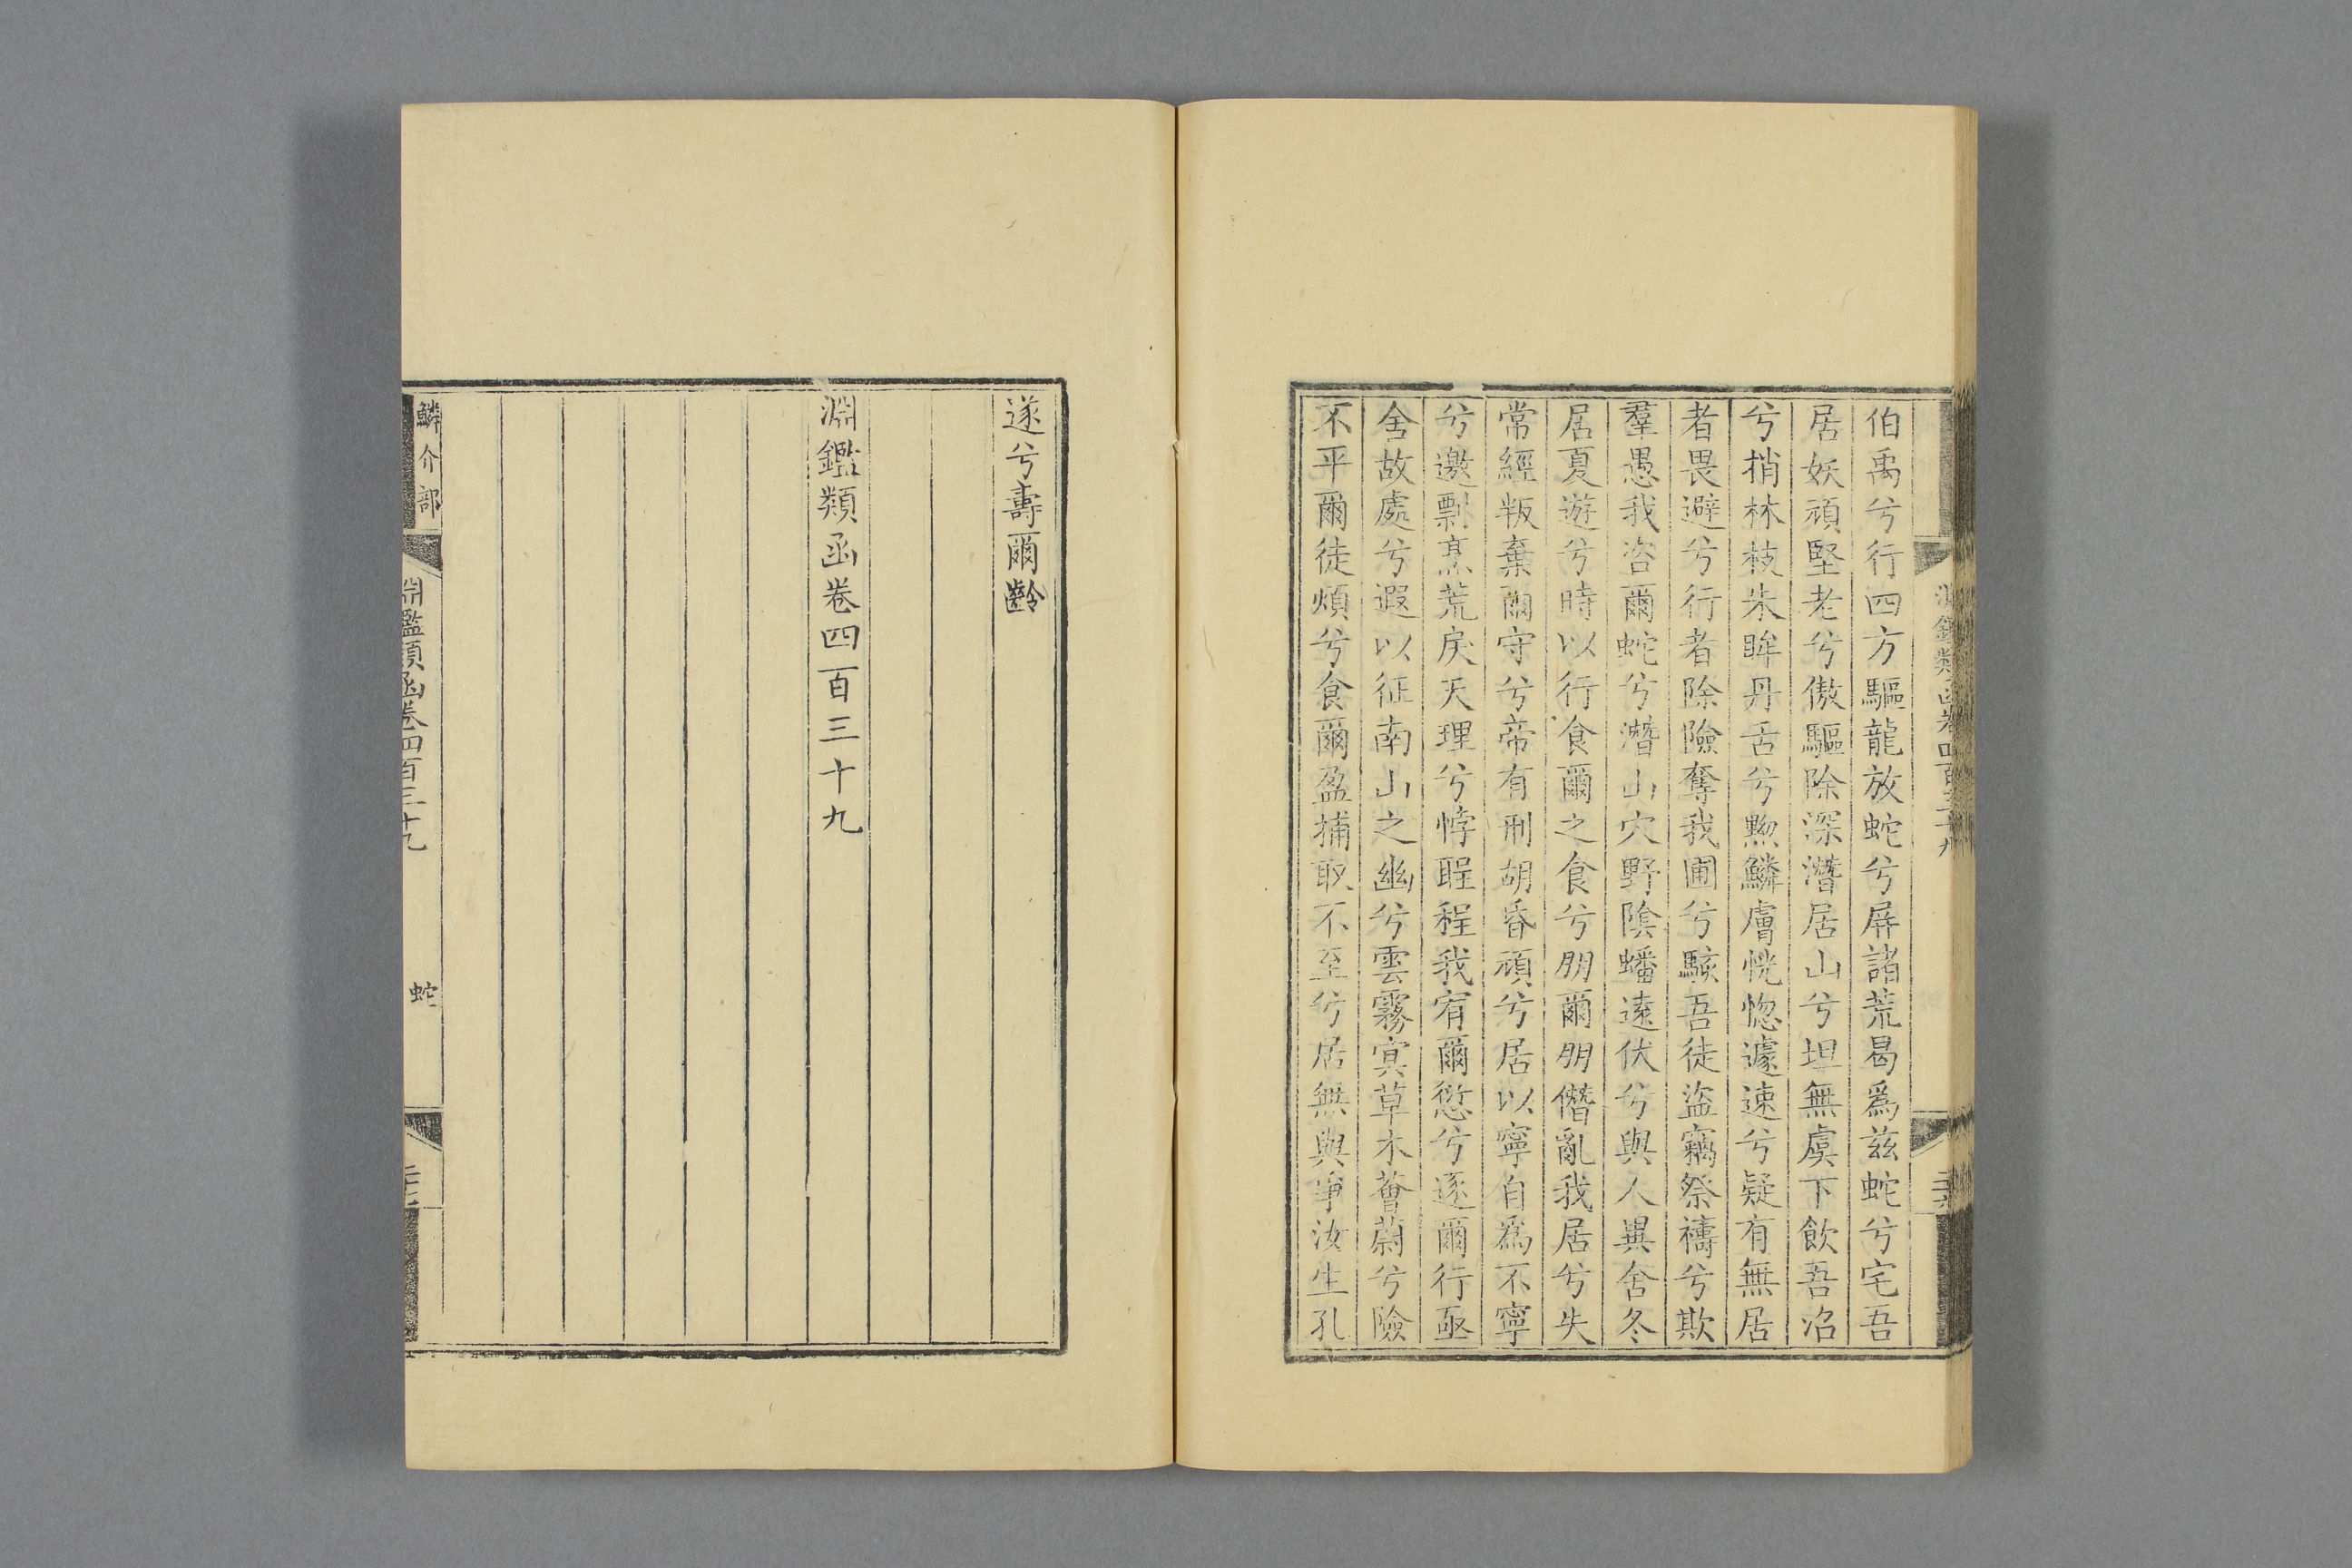 伯禹兮行四方驅龍放蛇兮屏諸荒曷爲兹蛇兮宅吾
居妖頑堅老兮傲驅除深潛居山兮坦無虞下飲吾沼
兮捎林枝朱眸丹舌兮黝鱗膚恍惚遽速兮疑有無居
者畏避兮行者除險奪我圃兮駭吾徒盜竊祭禱兮欺
羣愚我咨爾蛇兮潛山穴野陰蟠遠伏兮與人異舍冬
居夏遊兮時以行食爾之食兮朋爾朋僭亂我居兮失
常經叛棄爾守兮帝有刑胡昏頑兮居以寧自爲不寧
兮邀剽烹荒戾天理兮悖程我宥爾愆兮逐爾行亟
舍故處兮遐以征南山之幽兮雲霧冥草木薈蔚兮險
不平爾徒煩兮食爾盈捕取不至兮居無與爭汝生孔
淵鑑類函卷四百三十九
遂兮壽爾齡
淵鑑類函卷四百三十九
鱗介部
淵鑑類函卷四百三十九
蛇
二十七